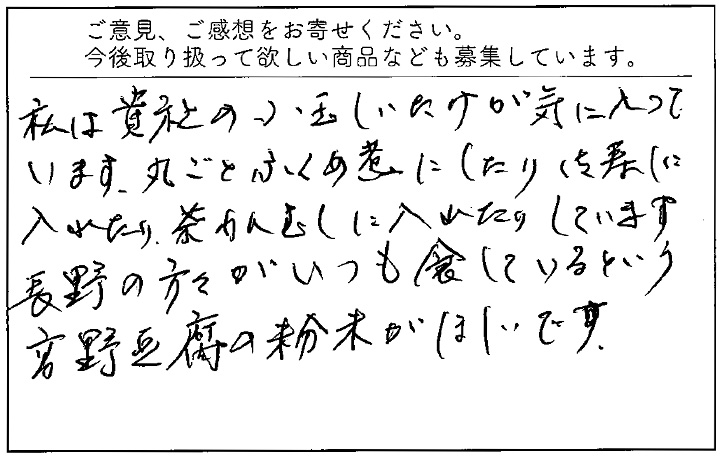 ご意見、ご感想をお寄せください。
今後取り扱って欲しい商品なども募集しています。
私は貴社の小玉しいたけが気に入って
います。丸ごとふくめ煮にしたり
入れたり、茶わんむしに入れたりしています
長野の方々がいつも食しているという
高野豆腐の粉末がほしいです。